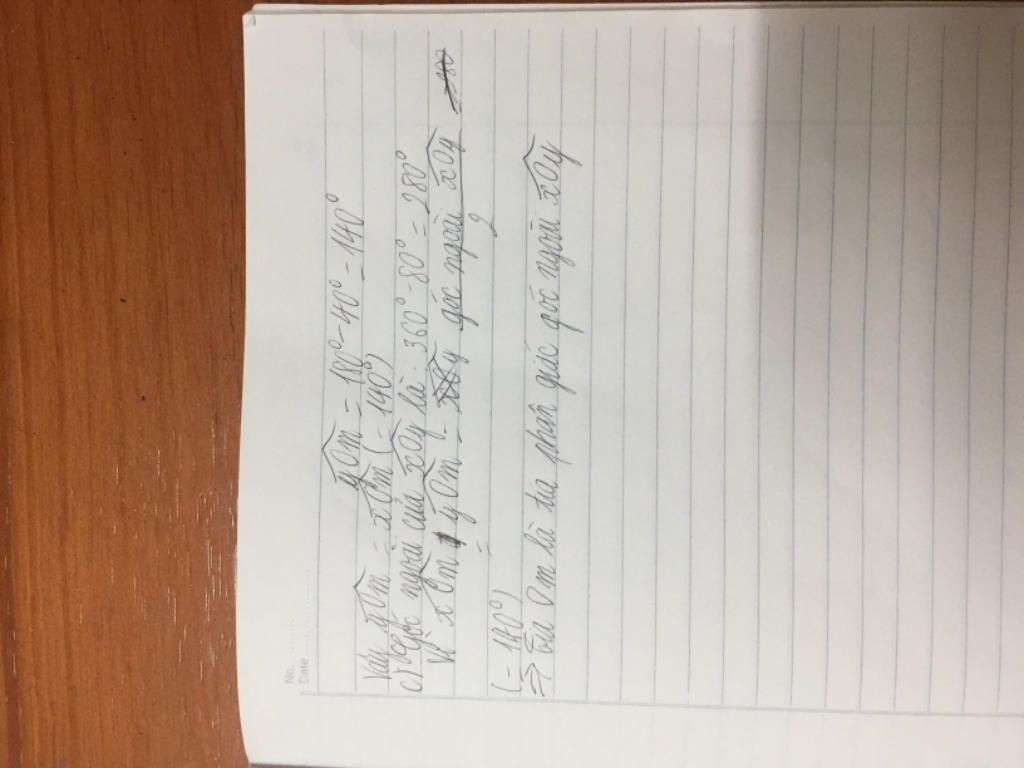 No. ............
Date ............
yOm = 180° - 40° = 140°
Vậy yOm = xOm (= 140°)
c) Góc ngoài của xOy là: 360° - 80° = 280°
Vì xOm = yOm = góc ngoài xOy
2
(= 140°)
=> Tia Om là tia phân giác góc ngoài xOy